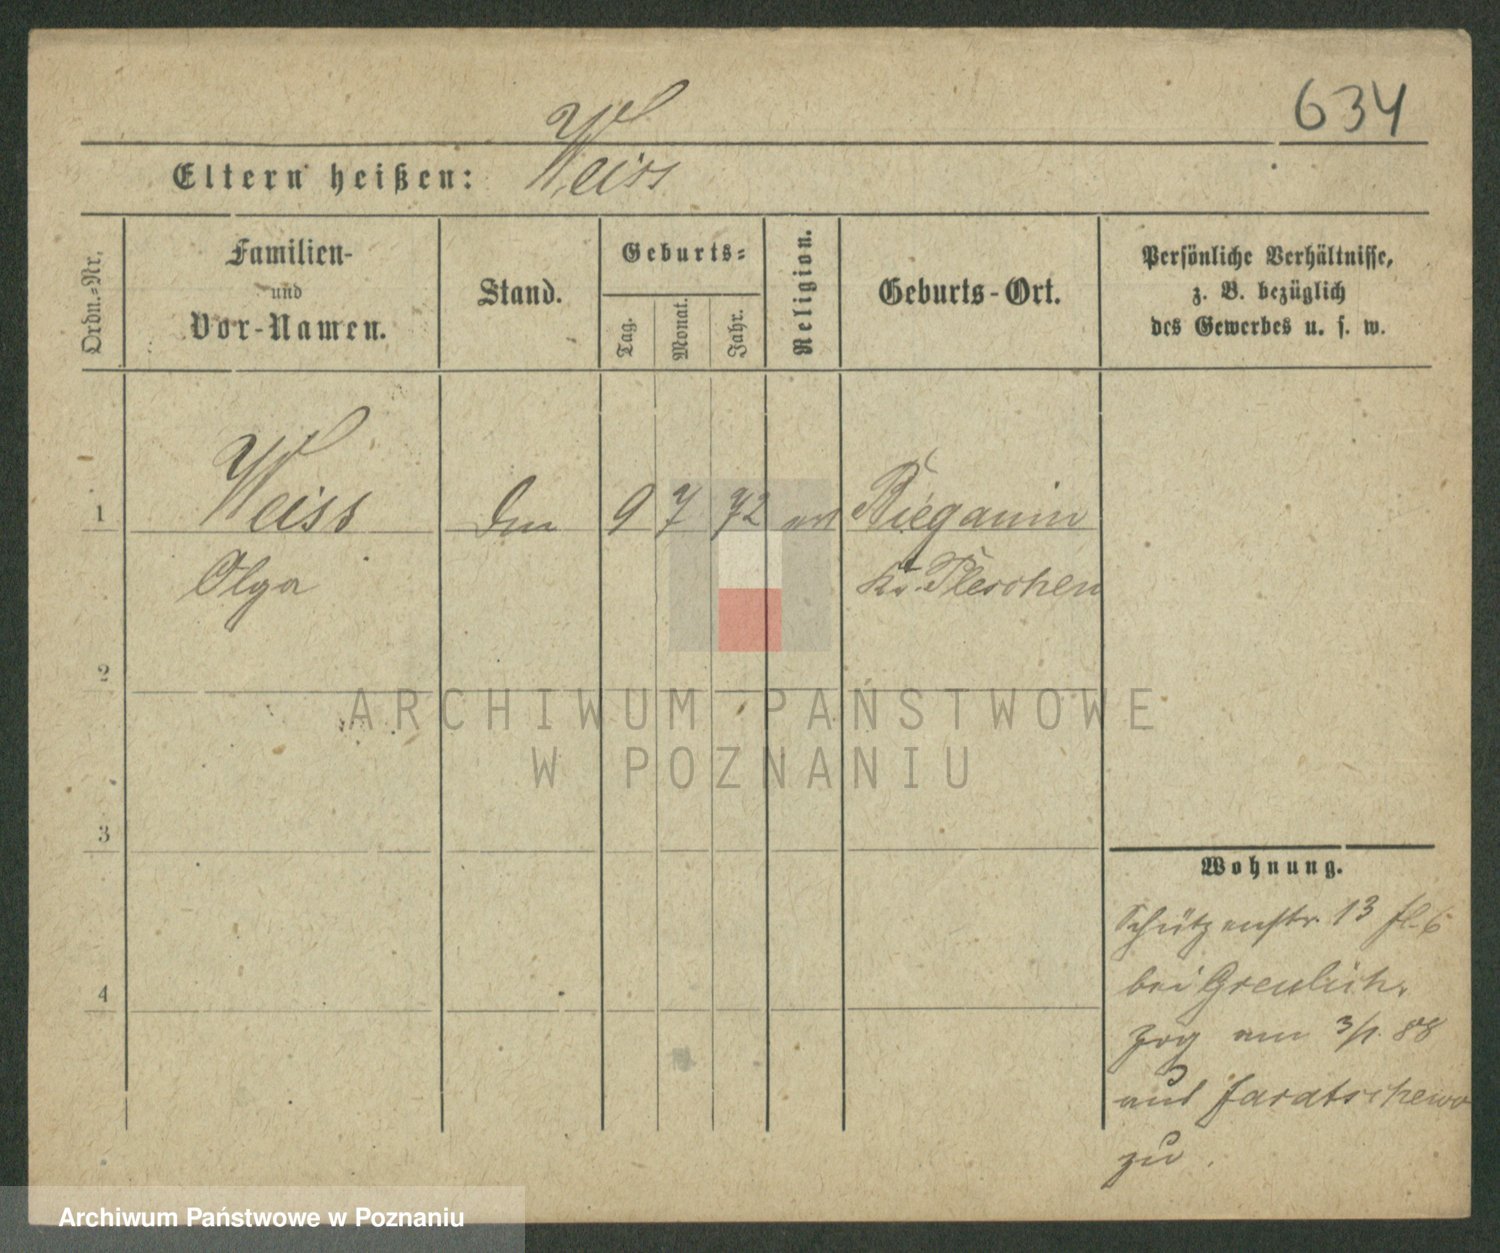 634
Eltern heißen: Weiss
Ordn.-Nr.
Familien-
und
Vor-Namen.
Stand.
Geburts-
Tag.
Monat.
Jahr.
Religion.
Geburts-Ort.
Persönliche Verhältnisse,
z. B. bezüglich
des Gewerbes u. s. w.
1 Weiss 9 7 72 Bieganin
Olga Kr. Pleschen
2
ARCHIWUM PAŃSTWOWE
W POZNANIU
3
4
Wohnung.
Schützenstr. 13
bei Greulich.
zog am 3/1. 88
aus Jaratschewo
zu.
Archiwum Państwowe w Poznaniu